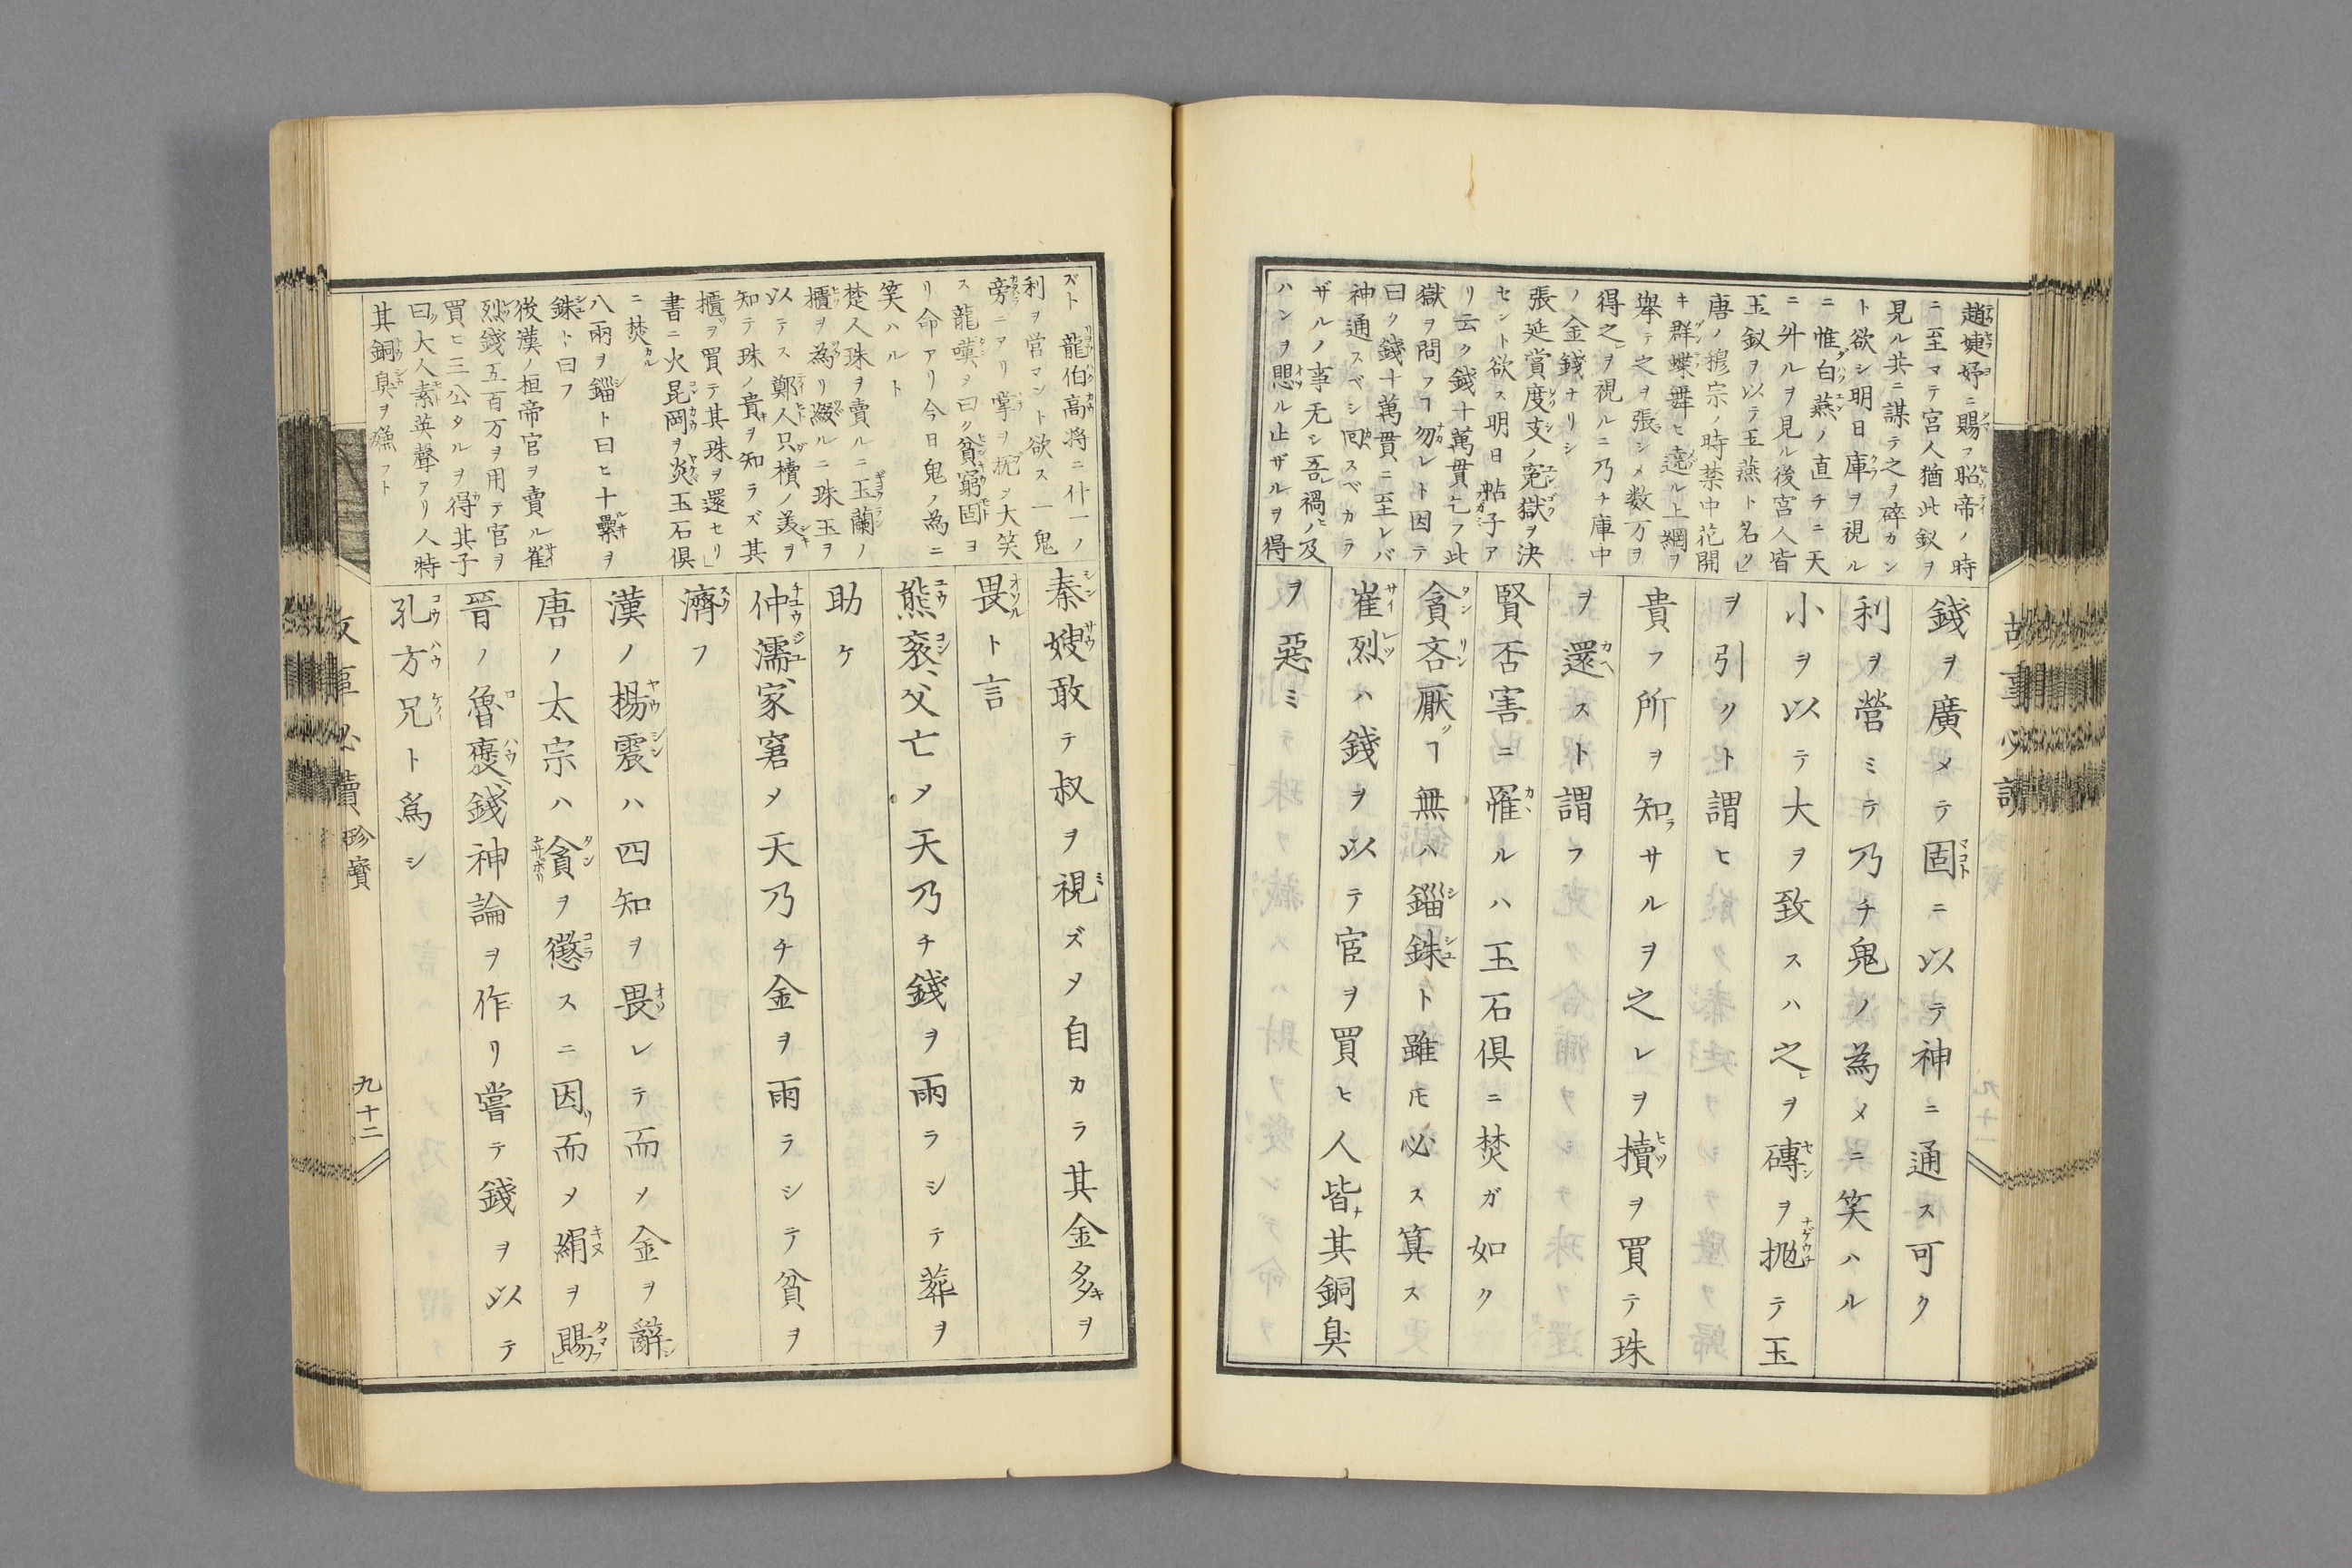 趙婕妤ニ賜フ昭帝ノ時
ニ至マテ宮人猶此釵ヲ
見ル共ニ謀テ之ヲ碎カン
ト欲シ明日庫ヲ視ル
ニ惟白燕ノ直チニ天
ニ升ルヲ見ル後宮人皆
玉釵ヲ以テ玉燕ト名ク」
唐ノ穆宗ノ時禁中花開
キ群蝶舞ヒ遶ル上網ヲ
擧テ之ヲ張シメ数万ヲ
得之ヲ視ルニ乃チ庫中
ノ金錢ナリシ
張延賞度支ノ冤獄ヲ決
セント欲ス明日帖子ア
リ云ク錢十萬貫乞フ此
獄ヲ問フヿ勿レト因テ
曰ク錢十萬貫ニ至レバ
神通スベシ回スベカラ
ザルノ事无シ吾禍ノ及
ハンヲ懼ル止ザルヲ得
錢ヲ廣メテ固ニ以テ神ニ通ス可ク
利ヲ營ミテ乃チ鬼ノ為メニ笑ハル
小ヲ以テ大ヲ致スハ之ヲ磚ヲ抛テ玉
ヲ引クト謂ヒ
貴フ所ヲ知ラサルヲ之レヲ擯ヲ買テ珠
ヲ還ストト謂フ
賢否害ニ罹ルハ玉石俱ニ焚ガ如ク
貪吝厭クヿ無ハ錙銖ト雖モ必ス算ス
崔烈ハ錢ヲ以テ官ヲ買ヒ人皆ナ其銅臭
ヲ惡ミ
故事必讀
ズト龍伯高将ニ什一ノ
利ヲ営マント欲ス一鬼
旁ニアリ掌ヲ拊シ大笑
ス龍嘆メ曰ク貧窮固ヨ
リ命アリ今日鬼ノ為ニ
笑ハルト
楚人珠ヲ賣ルニ玉蘭ノ
櫃ヲ為リ綴ルニ珠玉ヲ
以テス鄭人只櫝ノ美ヲ
知テ珠ノ貴ヲ知ラズ其
櫃ヲ買テ其珠ヲ還セリ」
書ニ火昆岡ヲ炎玉石俱
ニ焚
八兩ヲ錙ト曰ヒ十絫ヲ
銖ト曰フ
後漢ノ桓帝官ヲ賣ル崔
烈錢五百万ヲ用テ官ヲ
買ヒ三公タルヲ得其子
曰大人素英聲アリ人特
其銅臭ヲ嫌フト
秦嫂敢テ叔ヲ視ズメ自カラ其金多キヲ
畏ト言
熊袞、父亡メ天乃チ錢ヲ雨ラシテ葬ヲ
助ケ
仲濡、家窘メ天乃チ金ヲ雨ラシテ貧ヲ
濟フ
漢ノ楊震ハ四知ヲ畏レテ而メ金ヲ辭シ
唐ノ太宗ハ貪ヲ懲スニ因リ而メ絹ヲ賜」
晉ノ魯褒、錢神論ヲ作リ嘗テ錢ヲ以テ
孔方兄ト爲シ
故事必讀
珍寶
九十二